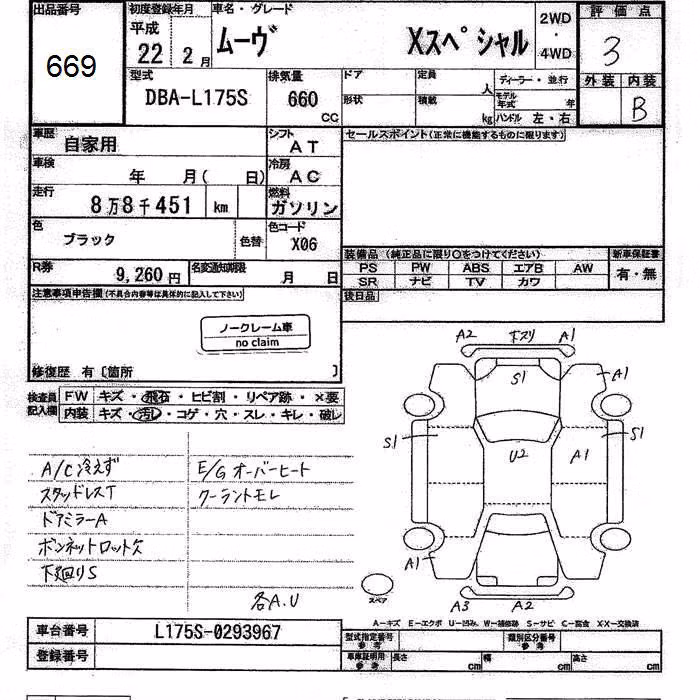 出品番号 初度登録年月 車名・グレード 評価点
669
平成 22 2月
ムーヴ Xスペシャル
2WD ・ 4WD
3
外装 内装
B
型式 排気量 ドア 定員 人 ディーラー・並行
DBA-L175S 660 CC
形状 積載 kg モデル年式 年 ハンドル 左・右
車歴 自家用 シフト AT セールスポイント(正常に機能するものに限ります)
車検 年 月( 日) 冷房 AC
走行 8万8千451 km 燃料 ガソリン
色 ブラック 色替 色コード X06
R券 9,260円 名変通知期限 月 日
装備品(純正品に限り○をつけてください) 新車保証書
PS PW ABS エアB AW 有・無
SR ナビ TV カワ
後日品
注意事項申告欄(不具合内容等は具体的に記入して下さい)
ノークレーム車
no claim
修復歴 有〔箇所 〕
検査員記入欄
FW キズ・飛石・ヒビ割・リペア跡・×要
内装 キズ・汚レ・コゲ・穴・スレ・キレ・破レ
A/C冷えず
スタッドレスT
ドアミラーA
ボンネットロット欠
下廻りS
E/Gオーバーヒート
クーラントモレ
各A.U
A2 ホスリ A1
S1 A1
S1 U2 A1 S1
A1
スペア
A3 A2
A-キズ E-エクボ U-凹み W-補修跡 S-サビ C-腐食 X・XX-交換済
車台番号 L175S-0293967
登録番号
型式指定番号 参考 類別区分番号 参考
車庫証明用 参考 長さ cm 幅 cm 高さ cm